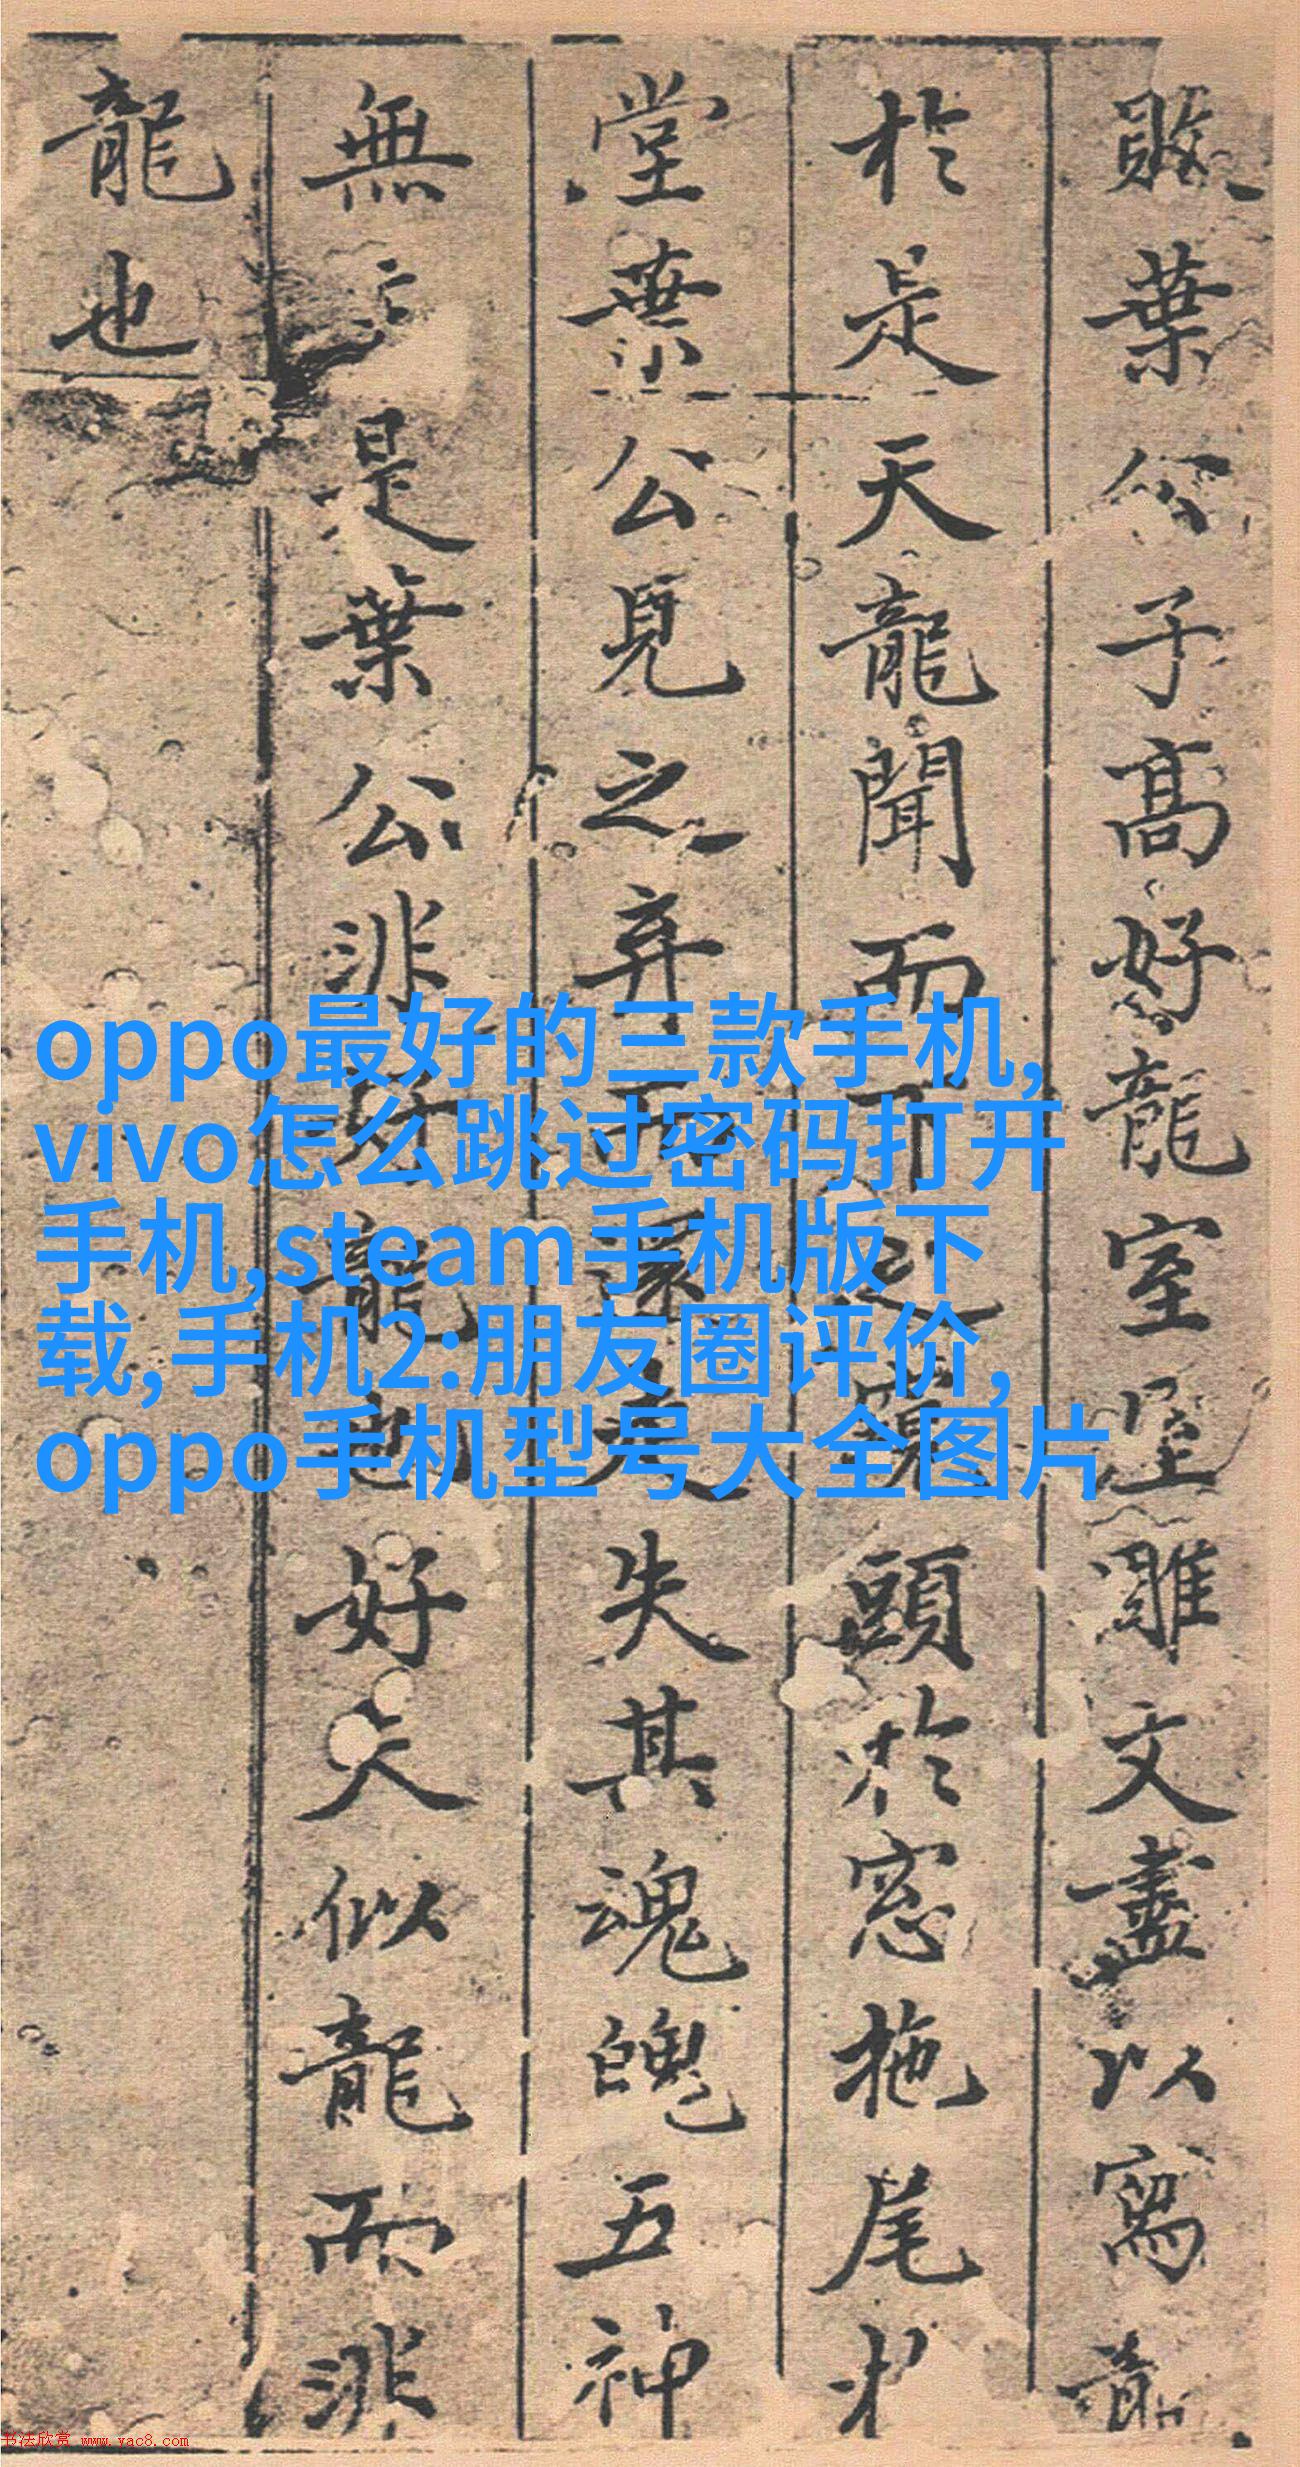 敗葉公子高好龍室雕文盡以寫龍
於是天龍聞而下之窺頭於窓拖尾於
堂葉公見之弃而還走失其魂魄五神
無主是葉公非好龍也好夫似龍而非
龍也
oppo最好的三款手机,
vivo怎么跳过密码打开
手机,steam手机版下
载,手机2:朋友圈评价,
oppo手机型号大全图片
书法欣赏 www.yac8.com